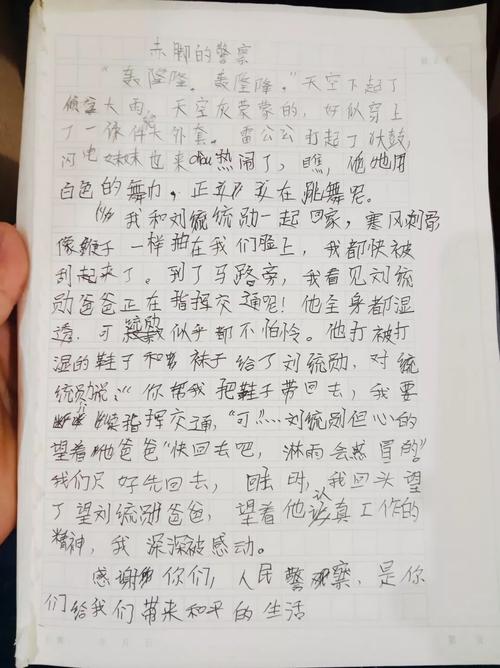 赤脚的警察
“轰隆隆。轰隆隆。”天空下起了
倾盆大雨，天空灰蒙蒙的，好似穿上
了一件大外套。雷公公打起了大鼓
闪电妹妹也来凑热闹了，瞧，她用
白色的舞巾，正在跳舞呢。
我和刘统勋一起回家，寒风刺骨
像鞭子一样抽在我们脸上，我都快被
刮起来了。到了马路旁，我看见刘统
勋爸爸正在指挥交通呢！他全身都湿
透，可似乎都不怕冷。他打被打
湿的鞋子和袜子给了刘统勋，对统
统勋说：“你帮我把鞋子带回去，我要
继续指挥交通，“可”……刘统勋但心的
望着他爸爸“快回去吧，淋雨会感冒的”
我们只好先回去，临时，我回头望
了望刘统勋爸爸，望着他认真工作的
精神，我深深被感动。
感谢你们，人民警察，是你
们给我们带来和平的生活